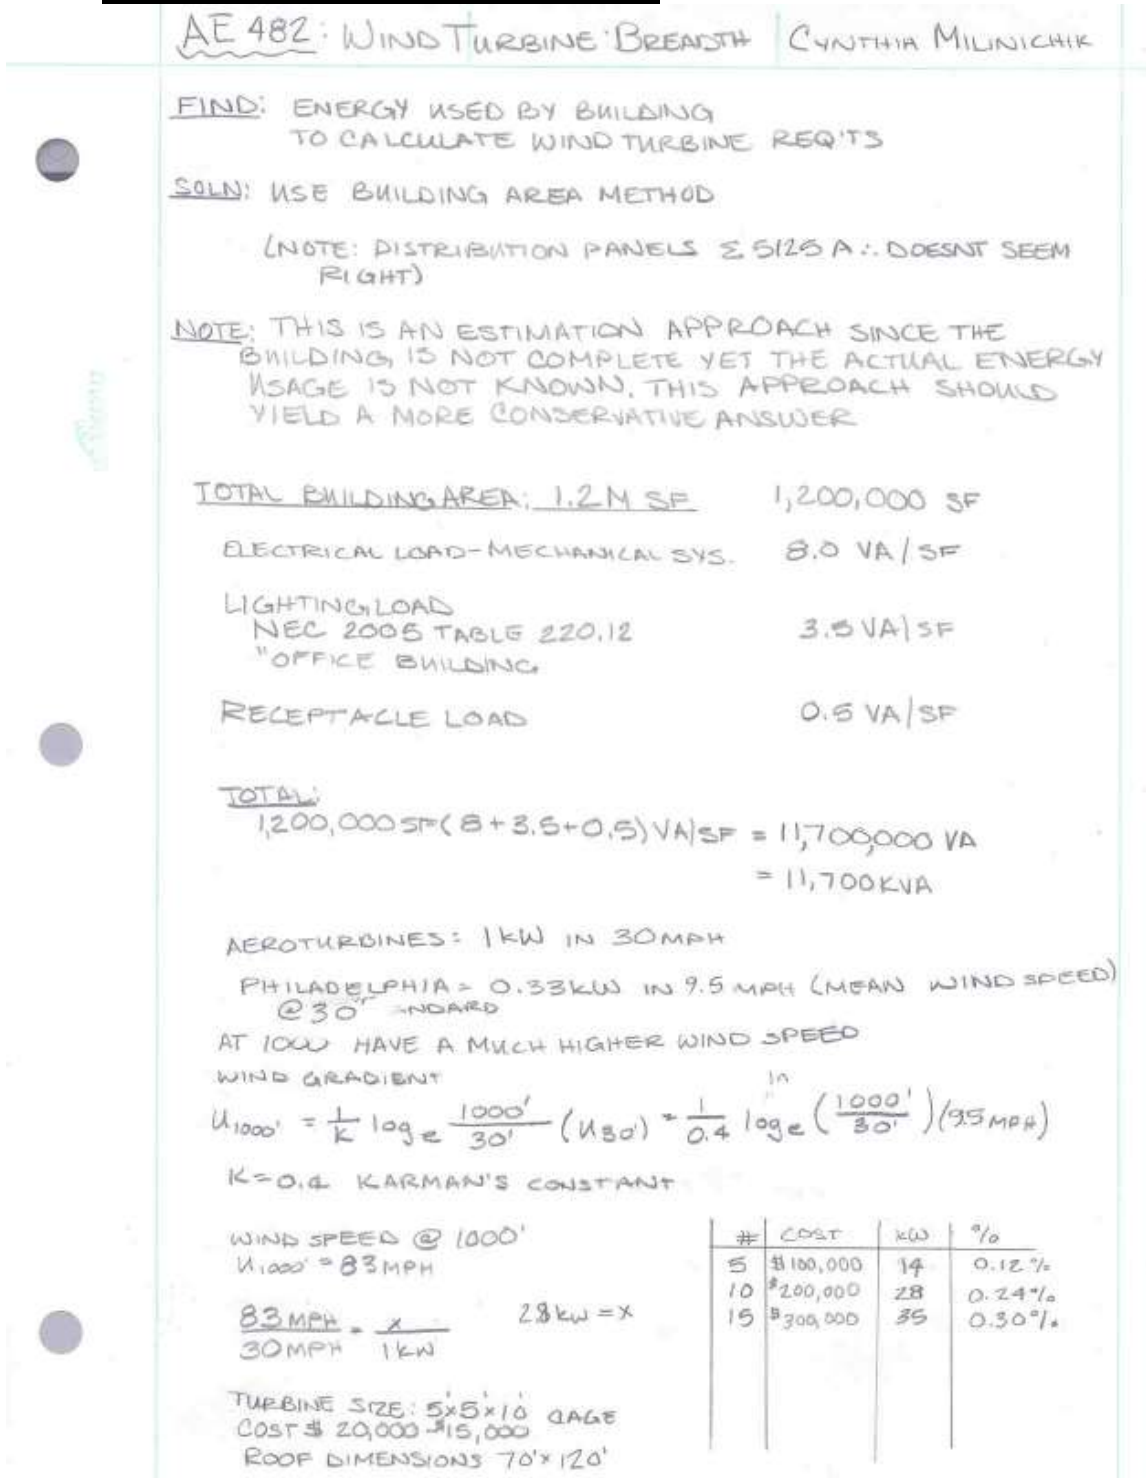 AE 482: WIND TURBINE BREADTH | CYNTHIA MILINICHIK
FIND: ENERGY USED BY BUILDING
TO CALCULATE WIND TURBINE REQ'TS
SOLN: USE BUILDING AREA METHOD
(NOTE: DISTRIBUTION PANELS Σ 5125 A ∴ DOESNT SEEM
RIGHT)
NOTE: THIS IS AN ESTIMATION APPROACH SINCE THE
BUILDING IS NOT COMPLETE YET THE ACTUAL ENERGY
USAGE IS NOT KNOWN. THIS APPROACH SHOULD
YIELD A MORE CONSERVATIVE ANSWER
TOTAL BUILDING AREA: 1.2M SF 1,200,000 SF
ELECTRICAL LOAD-MECHANICAL SYS. 8.0 VA/SF
LIGHTING LOAD
NEC 2005 TABLE 220.12 3.5 VA/SF
"OFFICE BUILDING
RECEPTACLE LOAD 0.5 VA/SF
TOTAL:
1,200,000 SF (8+3.5+0.5) VA/SF = 11,700,000 VA
= 11,700 KVA
AEROTURBINES: 1KW IN 30MPH
PHILADELPHIA = 0.33KW IN 9.5 MPH (MEAN WIND SPEED)
@ 30'
AT 1000 HAVE A MUCH HIGHER WIND SPEED
WIND GRADIENT ln
U1000' = 1/K loge 1000'/30' (U30') = 1/0.4 loge (1000'/30')(9.5 MPH)
K=0.4 KARMAN'S CONSTANT
WIND SPEED @ 1000'
U1000' = 83 MPH
83 MPH/30MPH = x/1KW 2.8 KW = X
TURBINE SIZE: 5'x5'x10' CAGE
COST $ 20,000 - $15,000
ROOF DIMENSIONS 70'x120'
# COST KW %
5 $100,000 14 0.12%
10 $200,000 28 0.24%
15 $300,000 35 0.30%